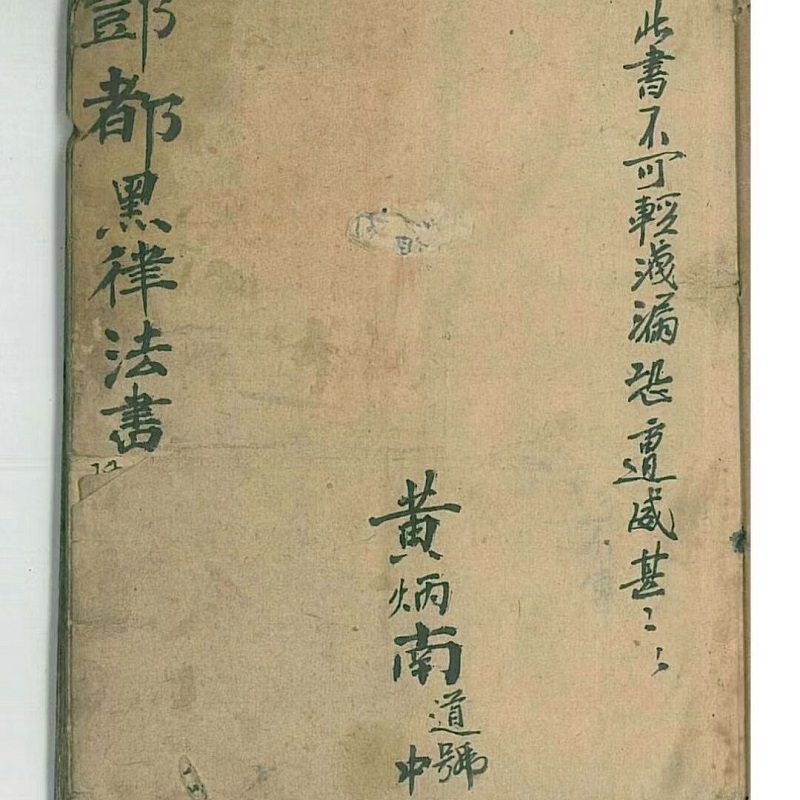 此書不可輕洩漏恐遭威甚〻〻
黄炳南道號
中
酆都黑律法書